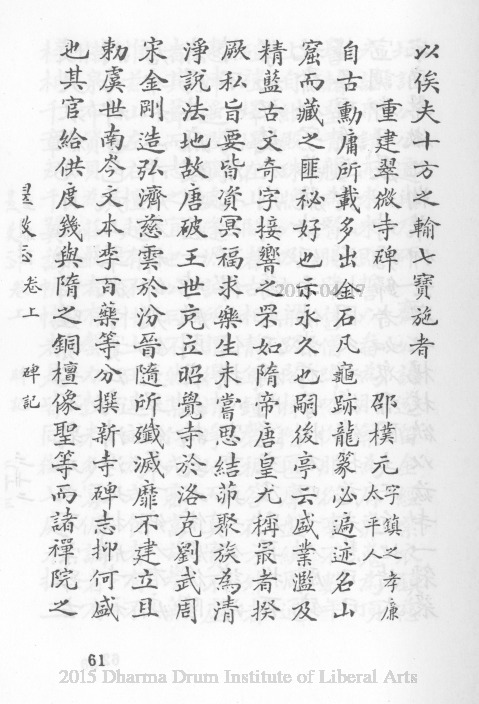 以俟夫十方之輸七寶施者
重建翠微寺碑 邵樸元字鎮之孝廉太平人
自古勳庸所載多出金石凡龜跡龍篆必遍迹名山
窟而藏之匪祕好也示永久也嗣後亭云盛業濫及
精藍古文奇字接響之罘如隋帝唐皇尤稱最者揆
厥私旨要皆資冥福求樂生未嘗思結茆聚族為清
淨說法地故唐破王世充立昭覺寺於洛克劉武周
宋金剛造弘濟慈雲於汾晉隨所殲滅靡不建立且
勅虞世南岑文本李百藥等分撰新寺碑志抑何盛
也其官給供度幾與隋之銅檀像聖等而諸禪院之
卷上 碑記
61
2015 Dharma Drum Institute of Liberal Arts